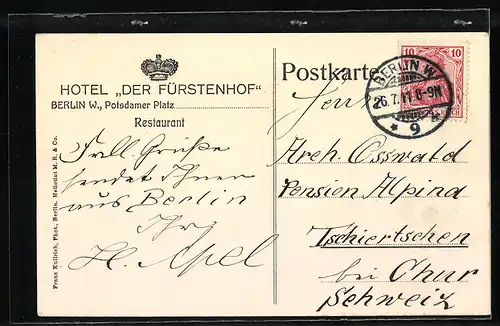 HOTEL „DER FÜRSTENHOF“
BERLIN W., Potsdamer Platz
Restaurant
Frdl. Grüße
sendet Ihnen
aus Berlin
Ihr
H. Apel
Franz Kullrich, Phot., Berlin. Heliotint M. R. & Co.
Postkarte
BERLIN W
26.7.11.8-9N
* 9
10 10
Herrn
Arch. Osswald
Pension Alpina
Tschiertschen
bei Chur
Schweiz